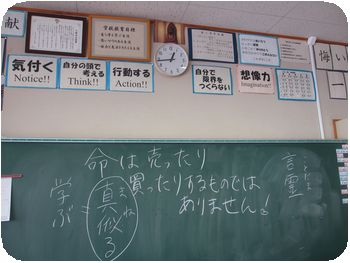 献
学校教育目標
気付く
Notice!!
自分の頭で
考える
Think!!
行動する
Action!!
自分で
限界を
つくらない
想像力
Imagination!!
悔い
一
命は売ったり
買ったりするものでは
ありません!
言霊
ことだま
学ぶ
真似る
まね